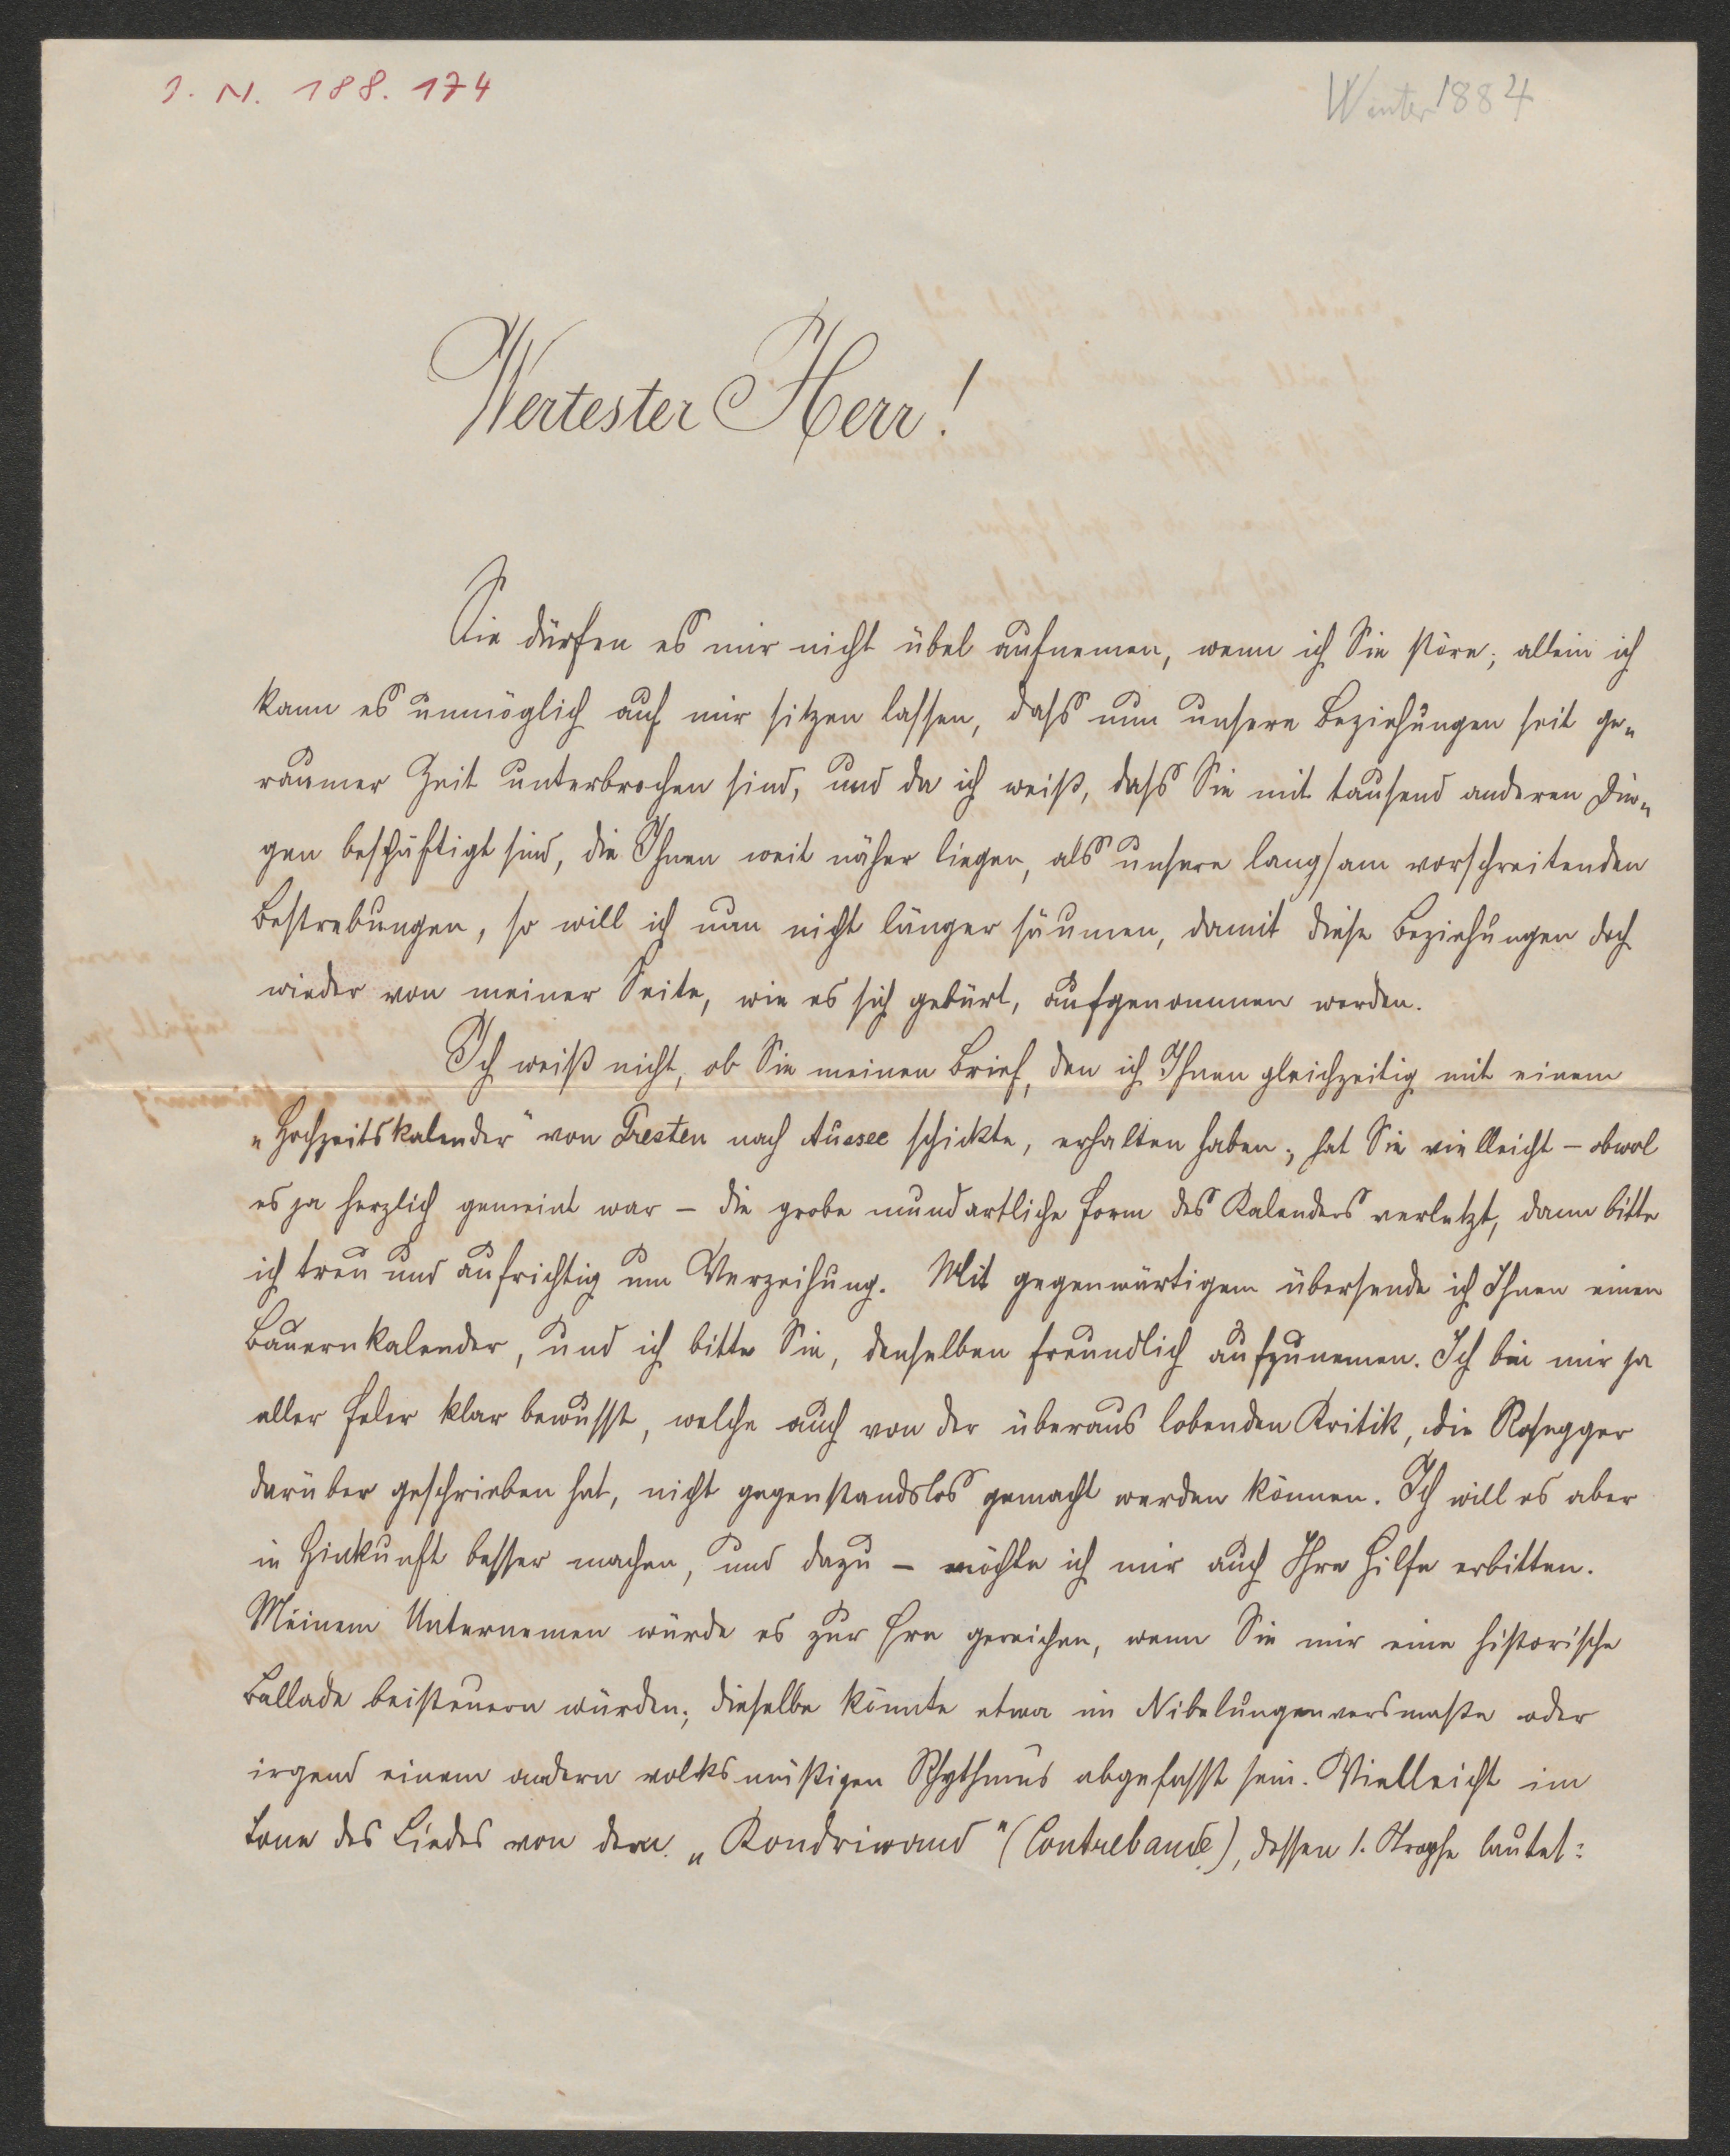 I. N. 188.174
Winter 1884
Wertester Herr!
Sie dürfen es mir nicht übel aufnemen, wenn ich Sie störe; allein ich
kann es unmöglich auf mir sitzen lassen, dass nun unsere Beziehungen seit ge-
raumer Zeit unterbrochen sind, und da ich weiß, dass Sie mit tausend anderen Din-
gen beschäftigt sind, die Ihnen weit näher liegen, als unsere langsam vorschreitenden
Bestrebungen, so will ich nun nicht länger säumen, damit diese Beziehungen doch
wieder von meiner Seite, wie es sich gebürt, aufgenommen werden.
Ich weiß nicht, ob Sie meinen Brief, den ich Ihnen gleichzeitig mit einem
„Hochzeitskalender“ von Gresten nach Aussee schickte, erhalten haben; hat Sie vielleicht – obwol
es ja herzlich gemeint war – die grobe mundartliche Form des Kalenders verletzt, dann bitte
ich treu und aufrichtig um Verzeihung. Mit gegenwärtigem übersende ich Ihnen einen
Bauernkalender, und ich bitte Sie, denselben freundlich aufzunemen. Ich bin mir ja
aller Feler klar bewusst, welche auch von der überaus lobenden Kritik, die Rosegger
darüber geschrieben hat, nicht gegenstandslos gemacht werden können. Ich will es aber
in Hinkunft besser machen, und dazu – möchte ich mir auch Ihre Hilfe erbitten.
Meinem Unternemen würde es zur Ere gereichen, wenn Sie mir eine historische
Ballade beisteuern würden; dieselbe könnte etwa im Nibelungenversmaße oder
irgend einem andern volksmäßigen Rhythmus abgefasst sein. Vielleicht im
Tone des Liedes von dem „Kondriwand“ (Contrebande), dessen 1. Strophe lautet: